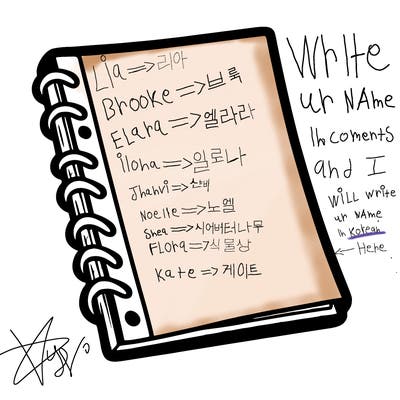 Lia => 리아
Brooke => 브룩
Elara => 엘라라
ilona => 일로나
Jhanvi =>
Noelle => 노엘
Shea => 시어버터나무
Flora => 식물상
Kate => 게이트
Write
ur NAme
In coments
and I
will write
ur NAme
In Korean
Here